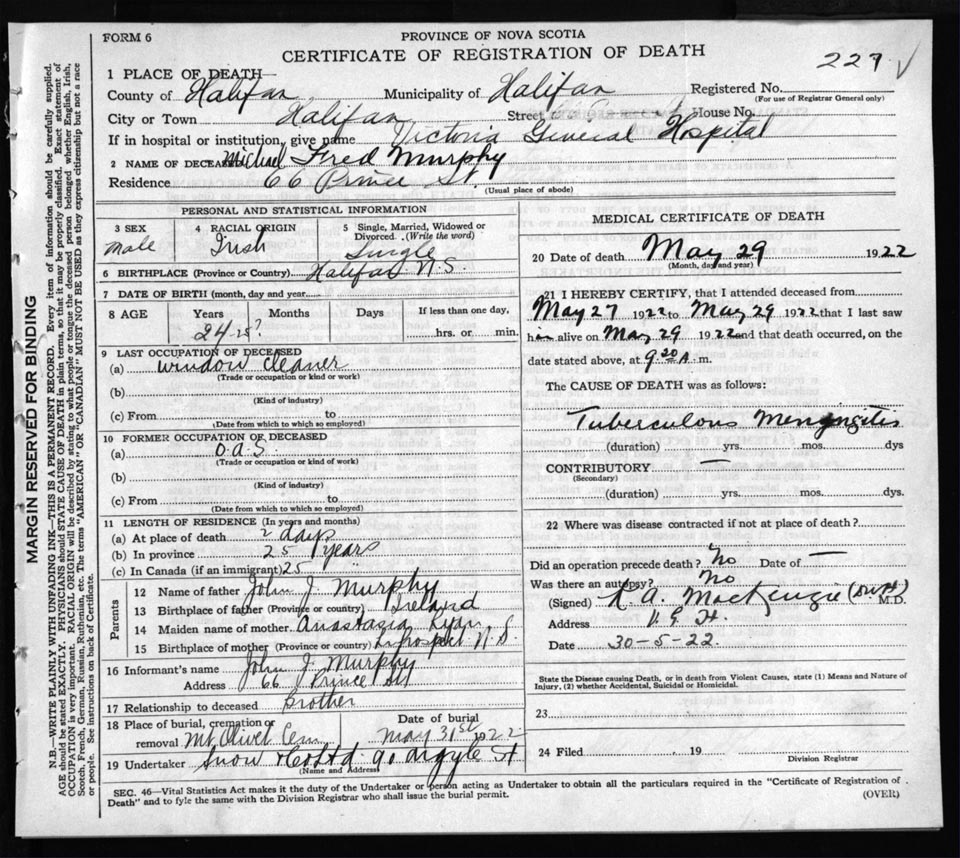 FORM 6
PROVINCE OF NOVA SCOTIA
CERTIFICATE OF REGISTRATION OF DEATH
227 ✓
1 PLACE OF DEATH
County of Halifax Municipality of Halifax Registered No.
(For use of Registrar General only)
City or Town Halifax Street House No.
If in hospital or institution, give name Victoria General Hospital
2 NAME OF DECEASED Michael Fred Murphy
Residence 66 Prince St.
(Usual place of abode)
PERSONAL AND STATISTICAL INFORMATION
3 SEX 4 RACIAL ORIGIN 5 Single, Married, Widowed or Divorced. (Write the word)
Male Irish Single
6 BIRTHPLACE (Province or Country) Halifax N.S.
7 DATE OF BIRTH (month, day and year)
8 AGE Years Months Days If less than one day,
24-25? hrs. or min.
9 LAST OCCUPATION OF DECEASED
(a) Window Cleaner
(Trade or occupation or kind or work)
(b)
(Kind of industry)
(c) From to
(Date from which to which so employed)
10 FORMER OCCUPATION OF DECEASED
(a) O.A.S.
(Trade or occupation or kind of work)
(b)
(Kind of industry)
(c) From to
(Date from which to which so employed)
11 LENGTH OF RESIDENCE (In years and months)
(a) At place of death 2 days
(b) In province 25 years
(c) In Canada (if an immigrant) 25 "
Parents
12 Name of father John J. Murphy
13 Birthplace of father (Province or country) Ireland
14 Maiden name of mother Anastasia Ryan
15 Birthplace of mother (Province or country) Prospect N.S.
16 Informant's name John J. Murphy
Address 66 Prince St
17 Relationship to deceased Brother
18 Place of burial, cremation or removal Mt Olivet Cem Date of burial May 31st 1922
19 Undertaker Snow & Co Ltd 90 Argyle St
(Name and Address)
MEDICAL CERTIFICATE OF DEATH
20 Date of death May 29 1922
(Month, day and year)
21 I HEREBY CERTIFY, that I attended deceased from
May 27 1922 to May 29 1922 that I last saw
him alive on May 29 1922 and that death occurred, on
date stated above, at 9 20 A. m.
The CAUSE OF DEATH was as follows:
Tuberculous Meningitis
(duration) yrs. mos. dys
CONTRIBUTORY —
(Secondary)
(duration) yrs. mos. dys.
22 Where was disease contracted if not at place of death?
Did an operation precede death? No Date of —
Was there an autopsy? No
(Signed) K A. MacKenzie M.D.
Address V. G. H.
Date 30-5-22
State the Disease causing Death, or in death from Violent Causes, state (1) Means and Nature of
Injury, (2) whether Accidental, Suicidal or Homicidal.
23
24 Filed 19
Division Registrar
SEC. 46—Vital Statistics Act makes it the duty of the Undertaker or person acting as Undertaker to obtain all the particulars required in the "Certificate of Registration of
Death" and to fyle the same with the Division Registrar who shall issue the burial permit. (OVER)
MARGIN RESERVED FOR BINDING
N.B.—WRITE PLAINLY WITH UNFADING INK—THIS IS A PERMANENT RECORD. Every item of information should be carefully supplied.
AGE should be stated EXACTLY. PHYSICIANS should STATE CAUSE OF DEATH in plain terms, so that it may be properly classified. Exact statement of
OCCUPATION is very important. RACIAL ORIGIN will be described by stating to what people or tongue the deceased person belonged whether English, Irish,
Scotch, French, German, Russian, Ruthenian, etc. The terms "AMERICAN" OR "CANADIAN" MUST NOT BE USED as they express citizenship but not a race
or people. See instructions on back of Certificate.